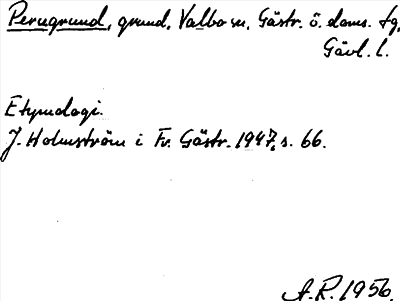 Perugrund, grund, Valbo sn, Gästr. ö. doms. fg,
Gävl. l.
Etymologi.
J. Holmström i Fr. Gästr. 1947, s. 66.
A.R. 1956.